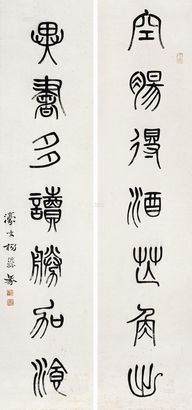 空腸得酒芒角出
異書多讀勝加湌
濠叟楊沂孫